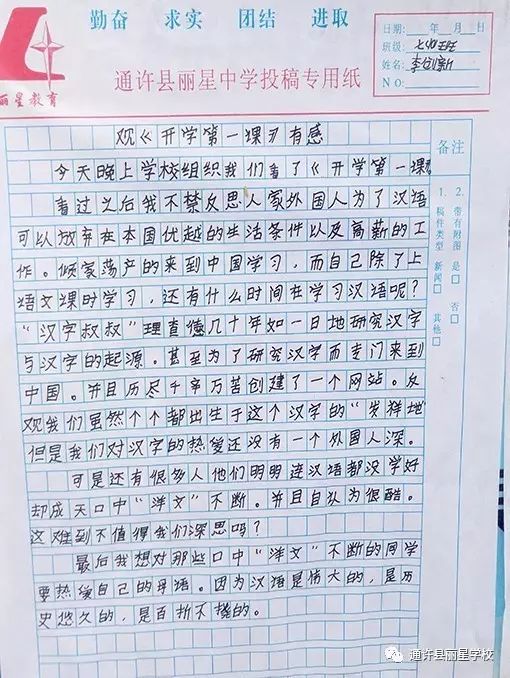 勤奋 求实 团结 进取
日期: 年 月 日
班级: 七四班
姓名: 李创新
NO:
丽星教育
通许县丽星中学投稿专用纸
观《开学第一课》有感
今天晚上学校组织我们看了《开学第一课》
看过之后我不禁反思人家外国人为了汉语
可以放弃在本国优越的生活条件以及高薪的工
作。倾家荡产的来到中国学习,而自己除了上
语文课时学习,还有什么时间在学习汉语呢?
“汉字叔叔”理查德几十年如一日地研究汉字
与汉字的起源。甚至为了研究汉字而专门来到
中国。并且历尽千辛万苦创建了一个网站。反
观我们虽然个个都出生于这个汉字的“发祥地
但是我们对汉字的热爱还没有一个外国人深。
可是还有很多人他们明明连汉语都没学好
却成天口中“洋文”不断。并且自认为很酷。
这难到不值得我们深思吗?
最后我想对那些口中“洋文”不断的同学
要热爱自己的母语。因为汉语是伟大的,是历
史悠久的,是百折不挠的。
备注
1. 稿件类型 新闻□ 其他□
2. 带有附图 是□ 否□
通许县丽星学校